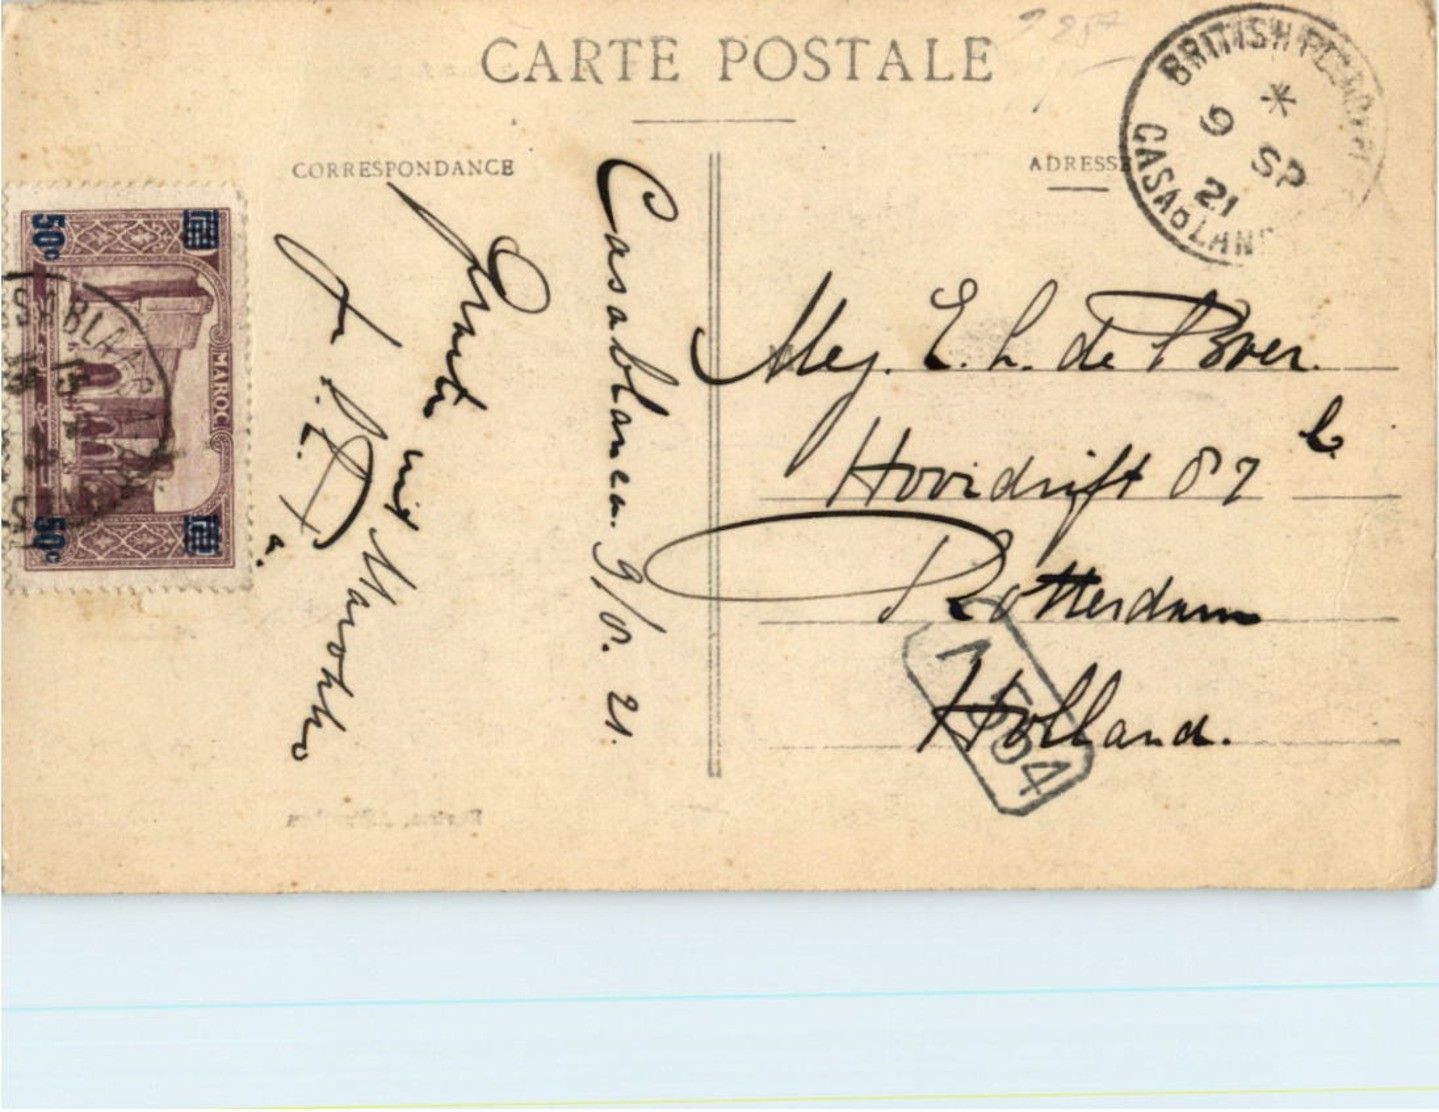 CARTE POSTALE
CORRESPONDANCE
ADRESSE
BRITISH
CASABLAN
* 9 SP 21
50c
50c
MAROC
SABLANCA
Casablanca. 9/8. 21.
Groete uit Marokko
Mej. E. L. de Boer.
Hovidrift 87 b
Rotterdam
Holland.
1554